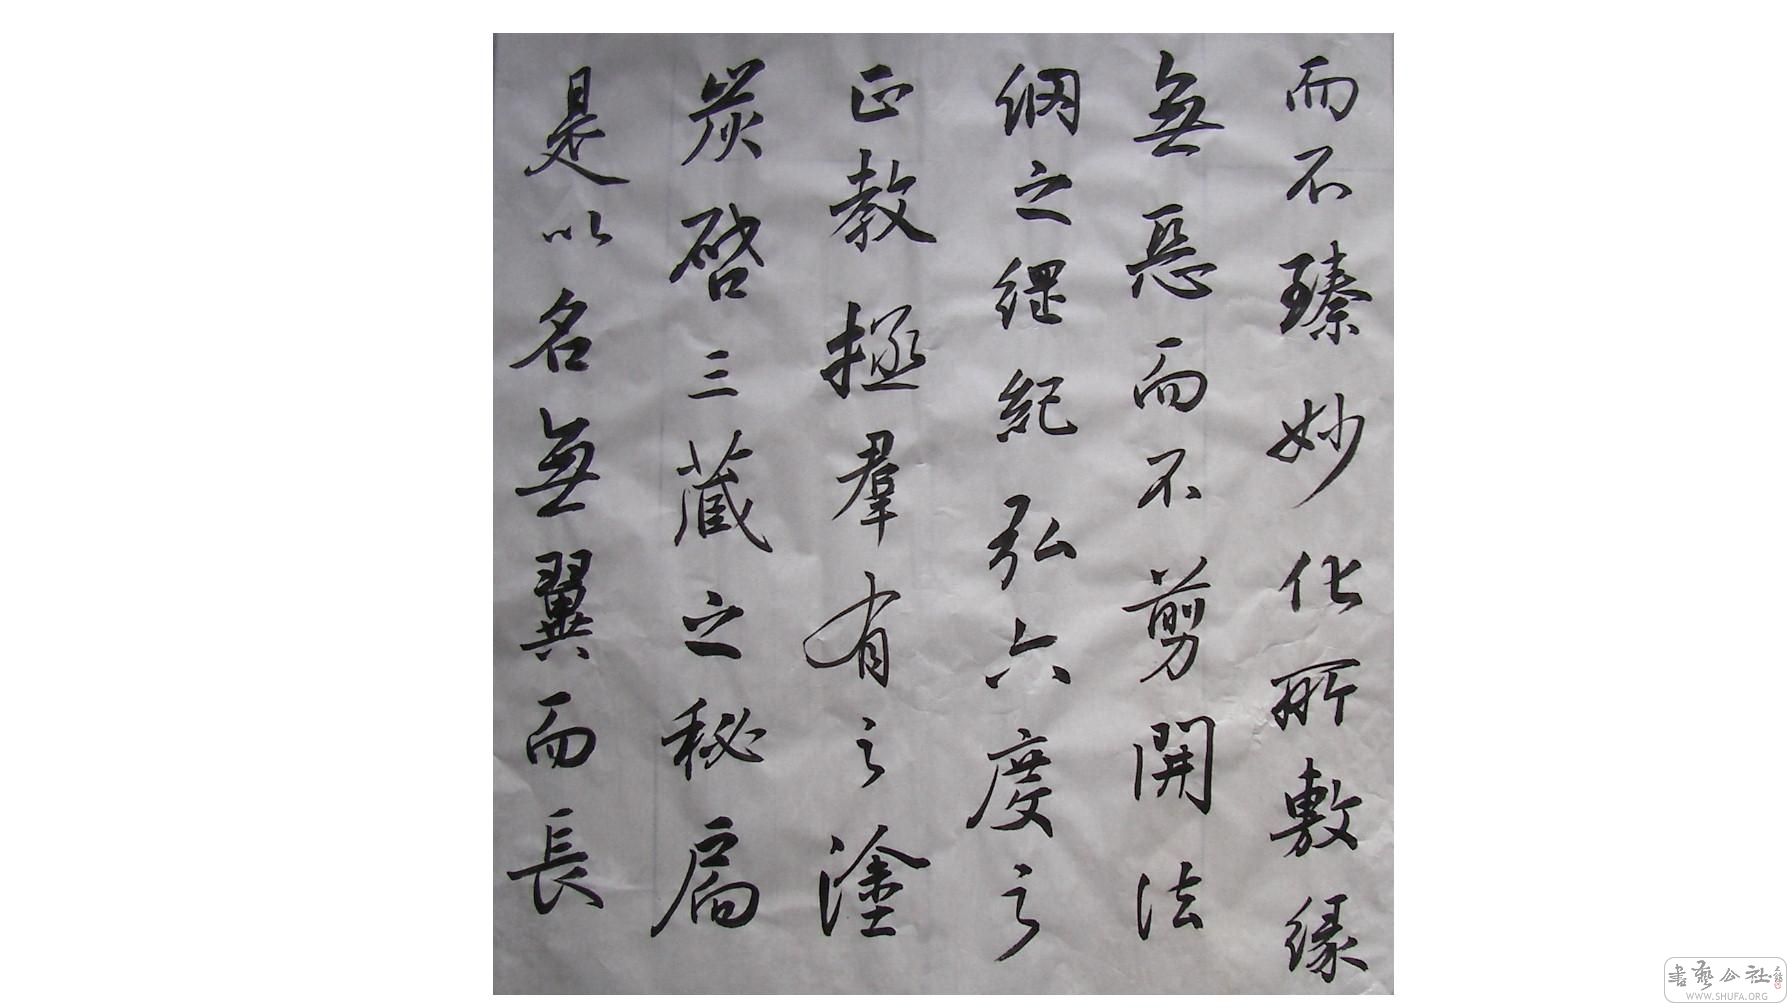 而不臻妙化所敷緣
無惡而不剪開法
網之綱紀弘六度之
正教拯羣有之塗
炭啓三藏之秘扃
是以名無翼而長
書藝公社
WWW.SHUFA.ORG